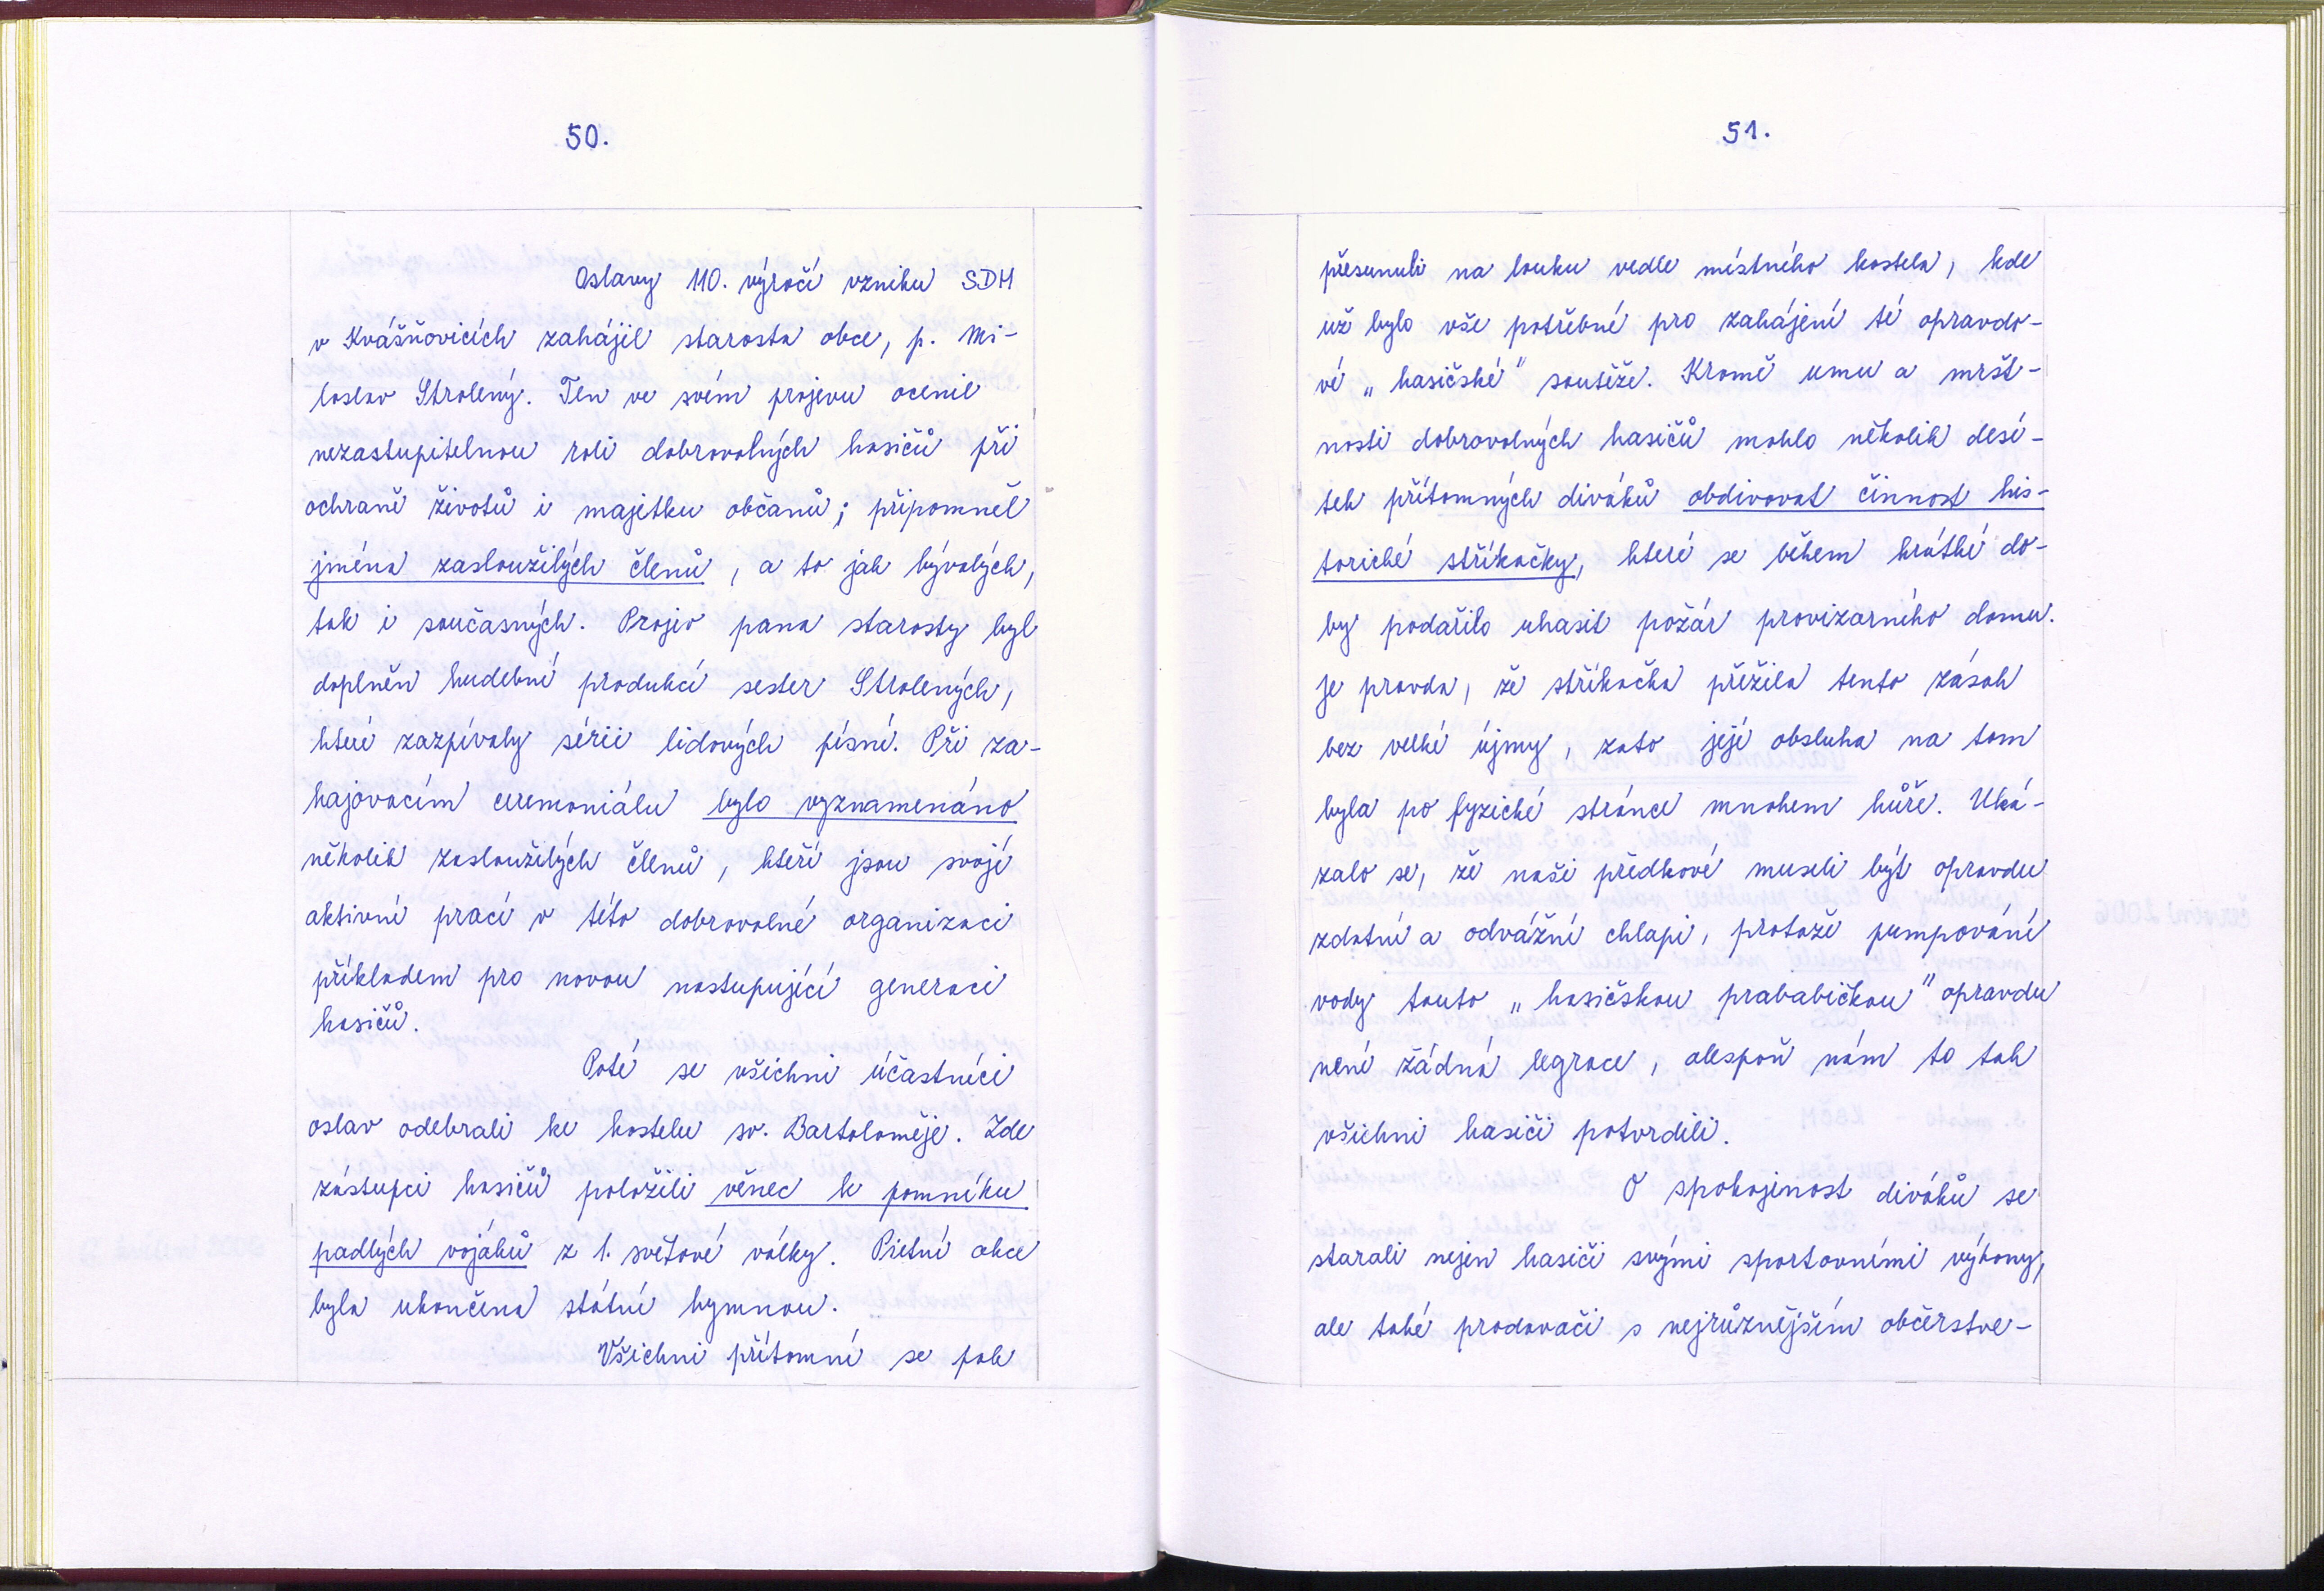 50.
Oslavy 110. výročí vzniku SDH
v Kvášňovicích zahájil starosta obce, p. Mi-
loslav Strolený. Ten ve svém projevu ocenil
nezastupitelnou roli dobrovolných hasičů při
ochraně životů i majetku občanů; připomněl
jména zasloužilých členů, a to jak bývalých,
tak i současných. Projev pana starosty byl
doplněn hudební produkcí sester Strolených,
které zazpívaly sérii lidových písní. Při za-
hajovacím ceremoniálu bylo vyznamenáno
několik zasloužilých členů, kteří jsou svojí
aktivní prací v této dobrovolné organizaci
příkladem pro novou nastupující generaci
hasičů.
Poté se všichni účastníci
oslav odebrali ke kostelu sv. Bartoloměje. Zde
zástupci hasičů položili věnec k pomníku
padlých vojáků z 1. světové války. Pietní akce
byla ukončena státní hymnou.
Všichni přítomní se pak
51.
přesunuli na louku vedle místního kostela, kde
už bylo vše potřebné pro zahájení té opravdo-
vé „hasičské" soutěže. Kromě umu a mršt-
nosti dobrovolných hasičů mohlo několik desí-
tek přítomných diváků obdivovat činnost his-
torické stříkačky, které se během krátké do-
by podařilo uhasit požár provizorního domu.
Je pravda, že stříkačka přežila tento zásah
bez velké újmy, zato její obsluha na tom
byla po fyzické stránce mnohem hůře. Uká-
zalo se, že naši předkové museli být opravdu
zdatní a odvážní chlapi, protože pumpování
vody touto „hasičskou prababičkou" opravdu
není žádná legrace, alespoň nám to tak
všichni hasiči potvrdili.
O spokojenost diváků se
starali nejen hasiči svými sportovními výkony,
ale také prodavači s nejrůznějším občerstve-